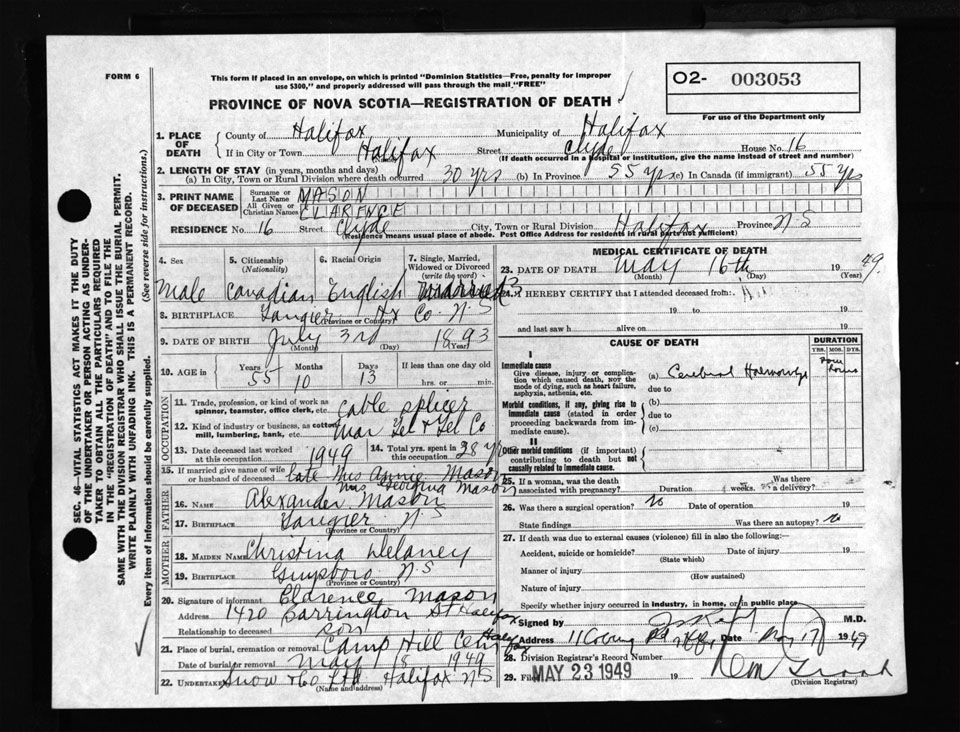 FORM 6
This form if placed in an envelope, on which is printed "Dominion Statistics—Free, penalty for improper
use $300," and properly addressed will pass through the mail "FREE"
PROVINCE OF NOVA SCOTIA—REGISTRATION OF DEATH
O2- 003053
For use of the Department only
1. PLACE OF DEATH
County of Halifax Municipality of Halifax
If in City or Town Halifax Street Clyde House No. 16
(If death occurred in a hospital or institution, give the name instead of street and number)
2. LENGTH OF STAY (in years, months and days)
(a) In City, Town or Rural Division where death occurred 30 yrs (b) In Province 55 yrs (c) In Canada (if immigrant) 55 yrs
3. PRINT NAME OF DECEASED
Surname or Last Name MASON
All Given or Christian Names CLARENCE
RESIDENCE No. 16 Street Clyde City, Town or Rural Division Halifax Province N.S
(Residence means usual place of abode. Post Office Address for residents in rural parts not sufficient)
4. Sex
5. Citizenship (Nationality)
6. Racial Origin
7. Single, Married, Widowed or Divorced (write the word)
Male Canadian English Married
8. BIRTHPLACE Tangier Hx Co. N.S
(Province or Country)
9. DATE OF BIRTH July 3rd 1893
(Month) (Day) (Year)
10. AGE in Years 55 Months 10 Days 13 If less than one day old
hrs. or min.
OCCUPATION
11. Trade, profession, or kind of work as spinner, teamster, office clerk, etc. cable splicer
12. Kind of industry or business, as cotton mill, lumbering, bank, etc. Mar Tel & Tel Co
13. Date deceased last worked at this occupation 1949 14. Total yrs. spent in this occupation 38 yrs
15. If married give name of wife or husband of deceased late Mrs Annie Mason
Mrs Georgina Mason
FATHER
16. NAME Alexander Mason
17. BIRTHPLACE Tangier N.S
(Province or Country)
MOTHER
18. MAIDEN NAME Christina Delaney
19. BIRTHPLACE Guysboro N.S
(Province or Country)
20. Signature of informant Clarence Mason
Address 1420 Barrington St Halifax
Relationship to deceased son
21. Place of burial, cremation or removal Camp Hill Cem Halifax
Date of burial or removal May 18 1949
22. UNDERTAKER Snow & Co Ltd Halifax N.S
(Name and address)
MEDICAL CERTIFICATE OF DEATH
23. DATE OF DEATH May 16th 1949.
(Month) (Day) (Year)
24. I HEREBY CERTIFY that I attended deceased from:
19 to 19
and last saw h alive on 19
CAUSE OF DEATH
DURATION
YRS. MOS. DYS.
I
Immediate cause
Give disease, injury or complication which caused death, NOT the mode of dying, such as heart failure, asphyxia, asthenia, etc.
(a) Cerebral Hemorrhage
due to
Morbid conditions, if any, giving rise to immediate cause (stated in order proceeding backwards from immediate cause).
(b)
due to
(c)
II
Other morbid conditions (if important) contributing to death but not causally related to immediate cause.
25. If a woman, was the death associated with pregnancy? Duration weeks. Was there a delivery?
26. Was there a surgical operation? No Date of operation 19
State findings Was there an autopsy? No
27. If death was due to external causes (violence) fill in also the following:—
Accident, suicide or homicide? Date of injury 19
(State which)
Manner of injury
(How sustained)
Nature of injury
Specify whether injury occurred in industry, in home, or in public place
Signed by M.D.
Address Date May 17 1949
28. Division Registrar's Record Number
29. Filed MAY 23 1949 19
(Division Registrar)
SEC. 46—VITAL STATISTICS ACT MAKES IT THE DUTY
OF THE UNDERTAKER OR PERSON ACTING AS UNDERTAKER
TO OBTAIN ALL THE PARTICULARS REQUIRED
IN THE "REGISTRATION OF DEATH" AND TO FILE THE
SAME WITH THE DIVISION REGISTRAR WHO SHALL ISSUE THE BURIAL PERMIT.
WRITE PLAINLY WITH UNFADING INK. THIS IS A PERMANENT RECORD.
Every item of Information should be carefully supplied. (See reverse side for instructions.)